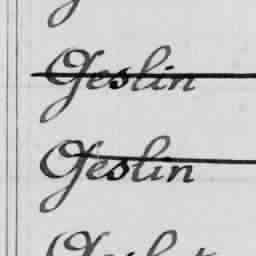 Geslin
Geslin